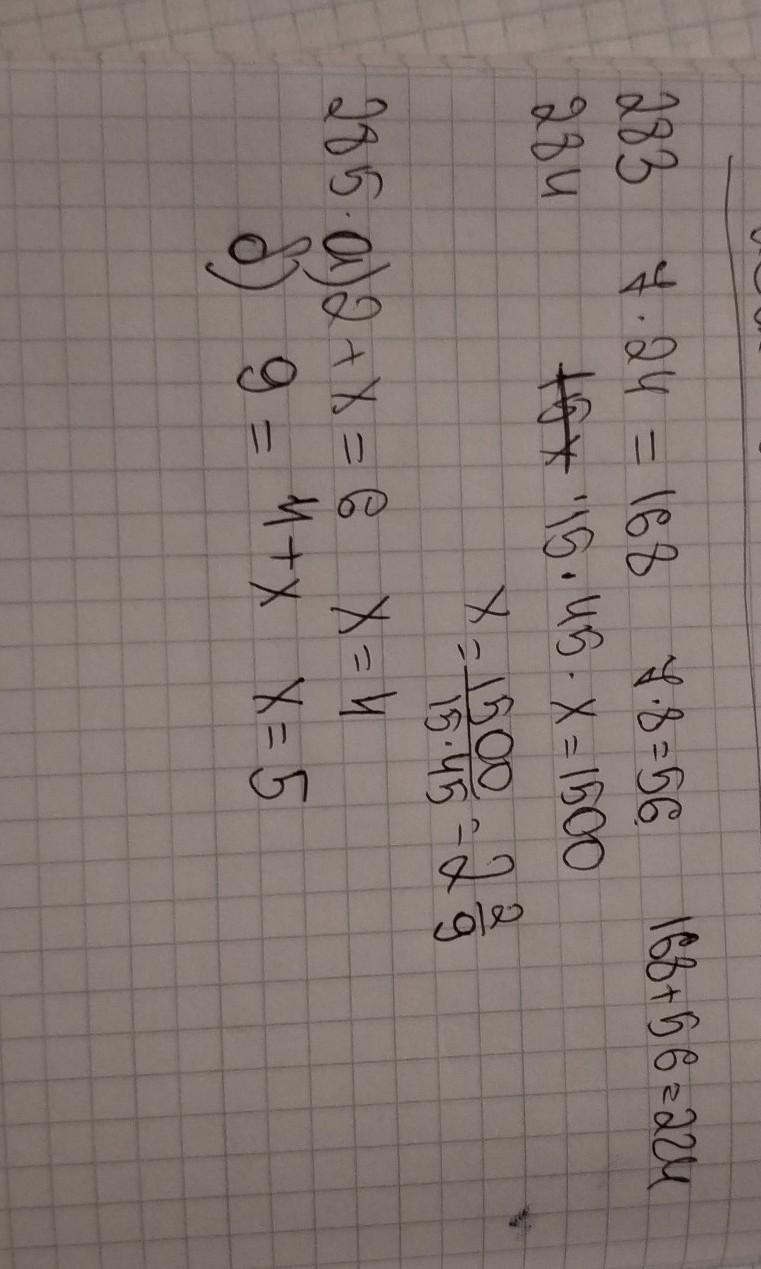 283 7·24 = 168 7·8=56 168+56=224
284 15·45·x=1500
x=1500/15·45=2 2/9
285. а) 2+x=6 x=4
б) 9=4+x x=5